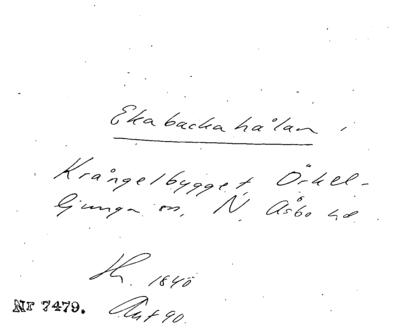 Ekabackahålan i
Krångelbygget, Örkel-
ljunga sn, N. Åsbo hd
1840
Nr 7479.
90